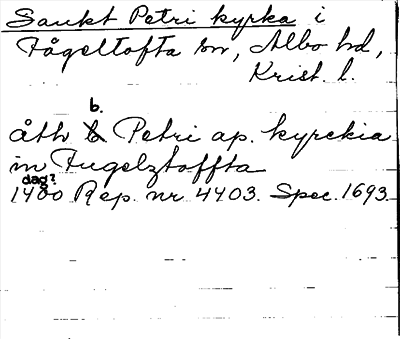 Sankt Petri kyrka i
Fågeltofta sn, Albo hd,
Krist. l.
b.
åth b Petri ap. kyrckia
in Fugelztoffta
dag?
1400 Rep. nr 4403. Spec. 1693.